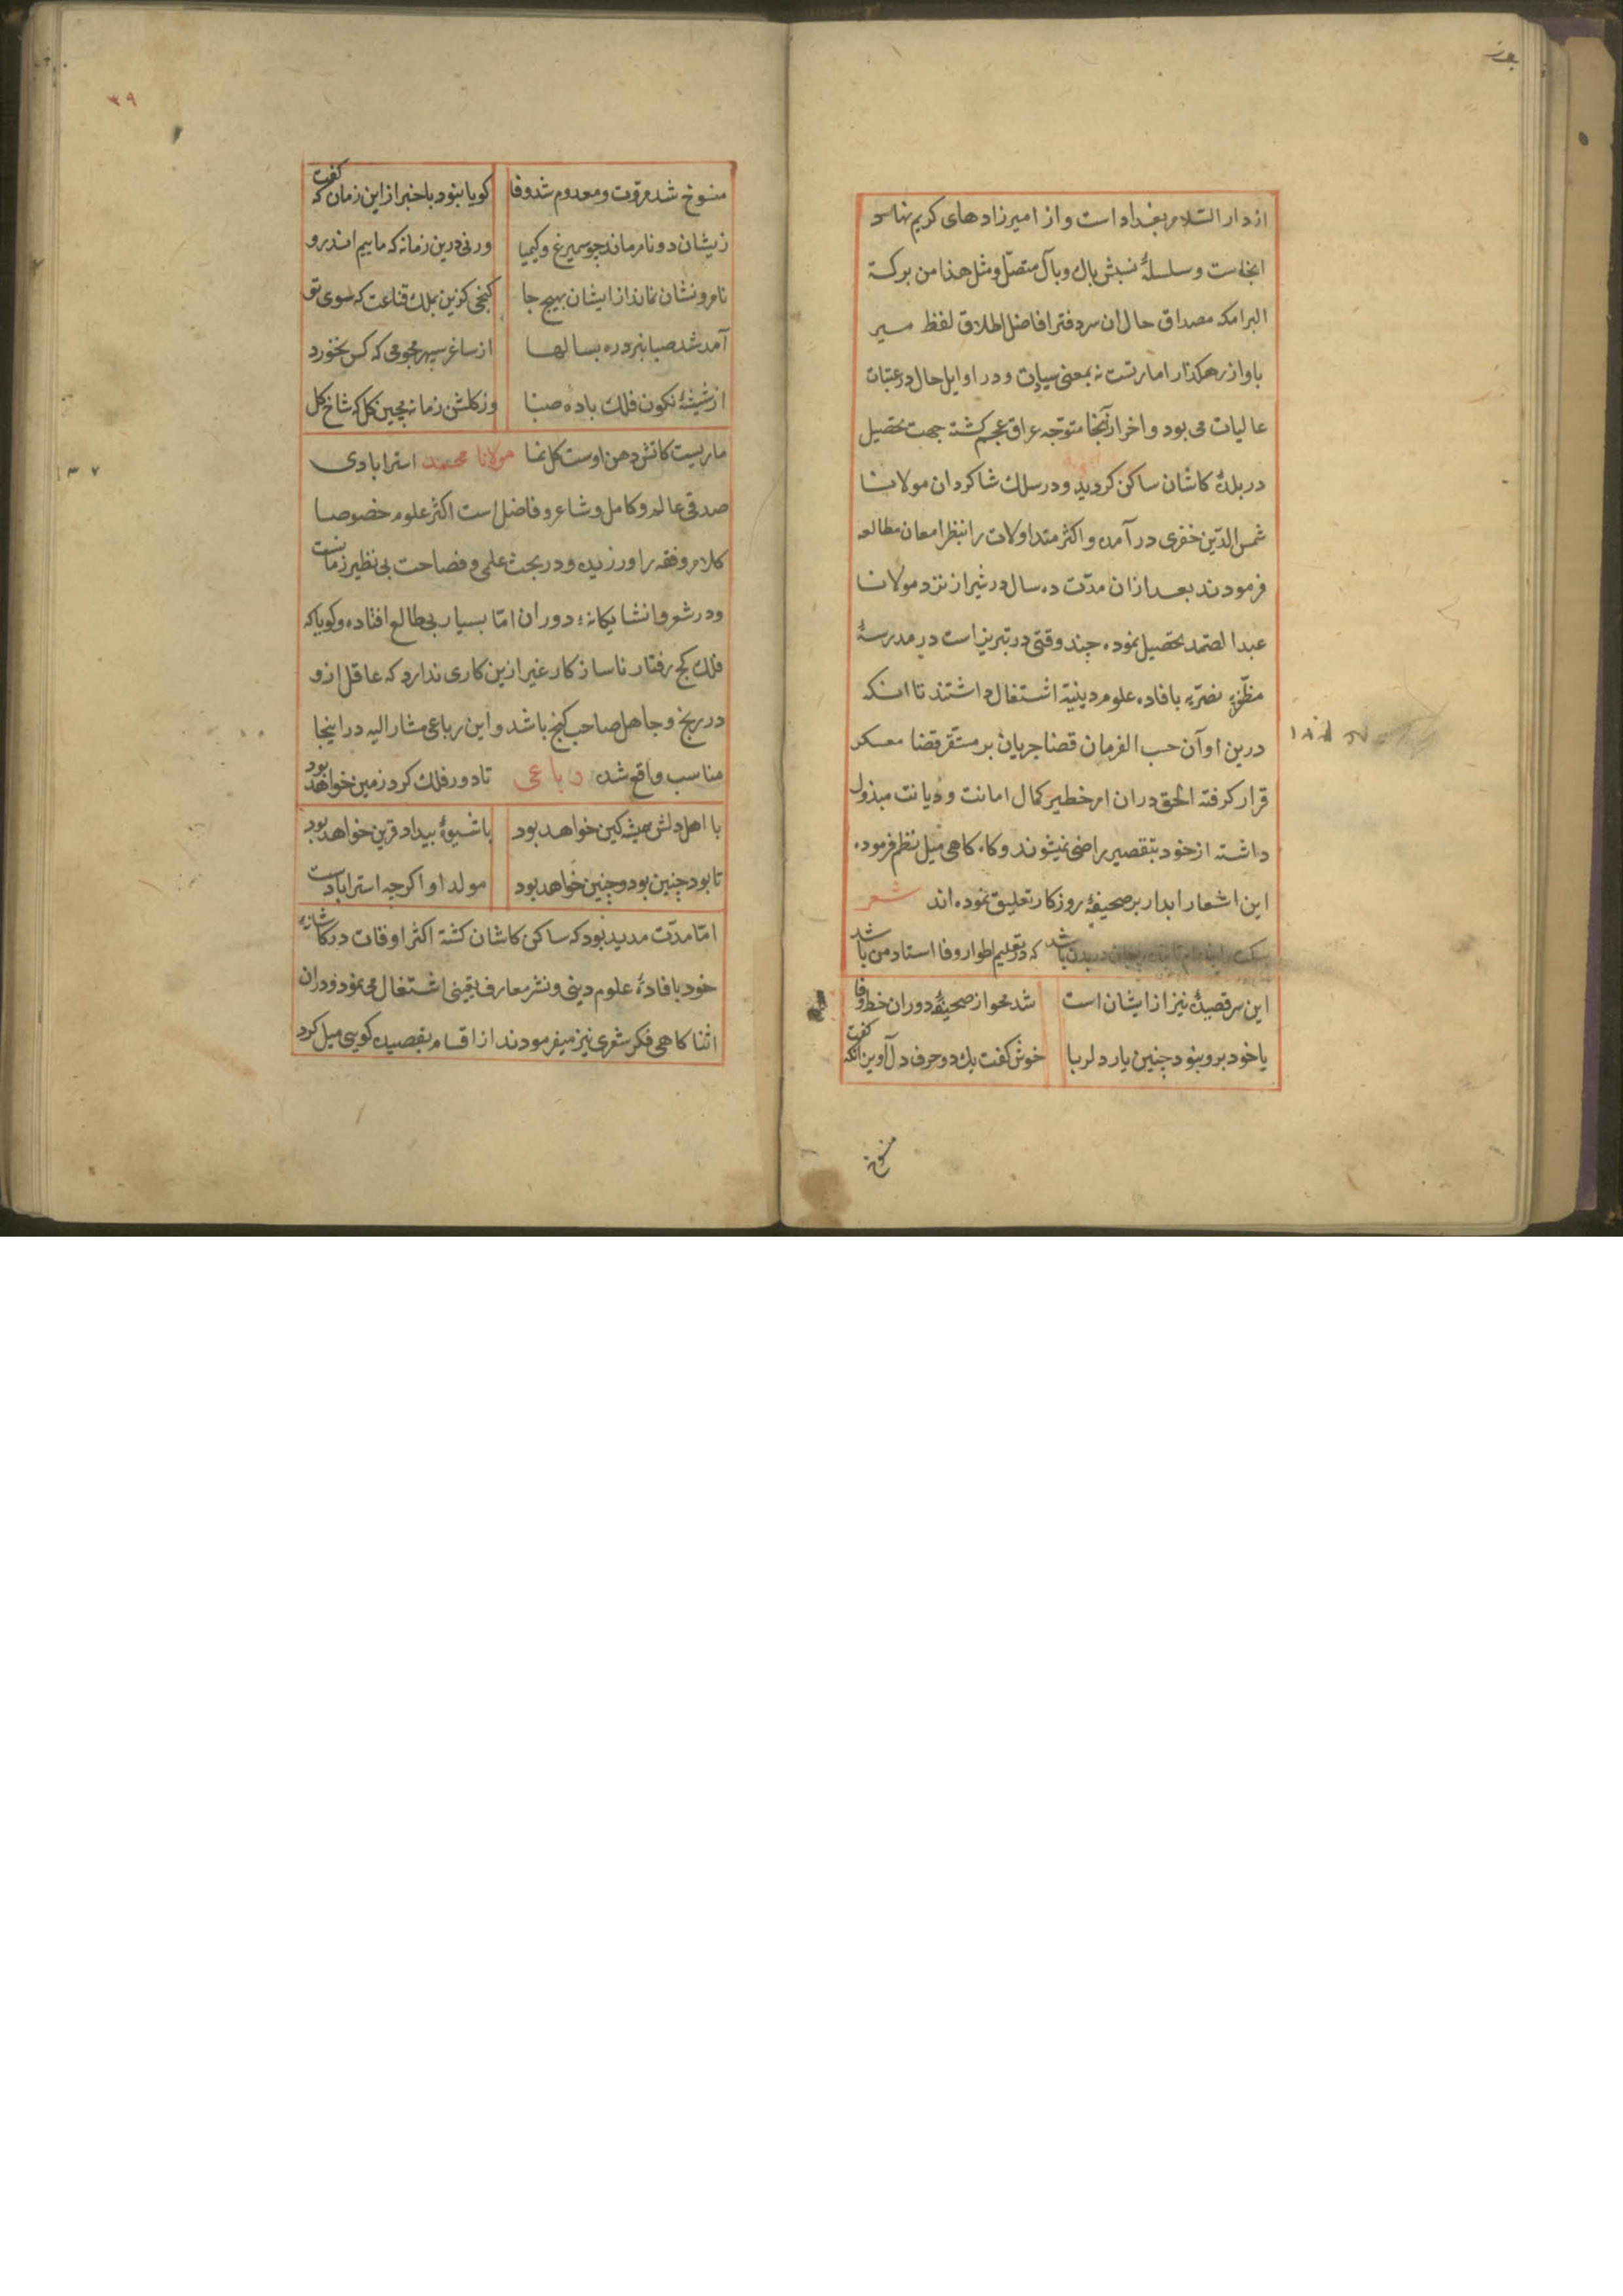 از دار السلام بغداد است و از امیرزادهای کریم نهاد
انجاست و سلسلهٔ نسبش بال و بآل متصّل و مثل هذا من برکة
البرامکه مصداق حال ان سر دفتر افاضل اطلاق لفظ میر
باو از رهکذار امارتست نه بمعنی سیادت و در اوایل حال در عتبات
عالیات می بود و اخر از آنجا متوجّه عراق عجم کشته جهت تحصیل
در بلدهٔ کاشان ساکن کردید و در سلک شاکردان مولانا
شمس الدّین خفری در آمده و اکثر متداولات را بنظر امعان مطالعه
فرمودند بعد از ان مدّت ده سال در شیراز نزد مولانا
عبد الصّمد تحصیل نموده چند وقتی در تبریز است در مدرسهٔ
نصریّه بافاده علوم دینیّه اشتغال داشتند تا انکه
درین اوآن حسب الفرمان قضا جریان بر مستقر قضا معسکر
قرار کرفته الحق در ان امر خطیر کمال امانت و دیانت مبذول
داشته از خود بتقصیر راضی نمیشوند و کاه کاهی میل نظم فرموده
این اشعار ابدار بر صحیفهٔ روزکار تعلیق نموده اند شعر
باشد که در تعلیم اطوار وفا استاد من باشد
این سر قصیده نیز از ایشان است شد محو از صحیفهٔ دوران خط وفا
یا خود برو نبود چنین یار دلربا خوش کفت یک دو حرف دل آویز آنکه کفت
منسوخ
٣٩
منسوخ شد مروّت و معدوم شد وفا کویا نبود با خبر از این زمان که کفت
زیشان دو نام ماند چو سیمرغ و کیمیا ور نی درین زمانه که ماییم اندرو
نام و نشان نماند از ایشان بهیچ جا کنجی کزین بملک قناعت که سوی تو
آمد شد صبا نبرد ره بسالها از ساغر سپهر مجو می که کس نخورد
از شیشهٔ نکون فلک بادهٔ صبا وز کلشن زمانه مچین کل که شاخ کل
ماریست کاتش دهن اوست کل نما مولانا محمد استرابادی
صدقی عالم و کامل و شاعر و فاضل است اکثر علوم خصوصا
کلام و فقه را ورزیده و در بحث علمی و فصاحت بی نظیر زمانست
و در شعر و انشا یکانهٔ دوران امّا بسیار بی طالع افتاده و کویا که
فلک کج رفتار ناساز کار غیر ازین کاری ندارد که عاقل ازو
در رنج و جاهل صاحب کنج باشد و این رباعی مشار الیه در اینجا
مناسب واقع شده رباعی تا دور فلک کرد زمین خواهد بود
با اهل دلش همیشه کین خواهد بود با شیوهٔ بیداد قرین خواهد بود
تا بود چنین بود و چنین خواهد بود مولد او اکرچه استرابادست
امّا مدّت مدید بود که ساکن کاشان کشته اکثر اوقات در کاشانهٔ
خود بافادهٔ علوم دینی و نشر معارف یقینی اشتغال می نمود و در ان
اثنا کاهی فکر شعری نیز میفرمودند از اقسام بقصیده کویی میل کرد